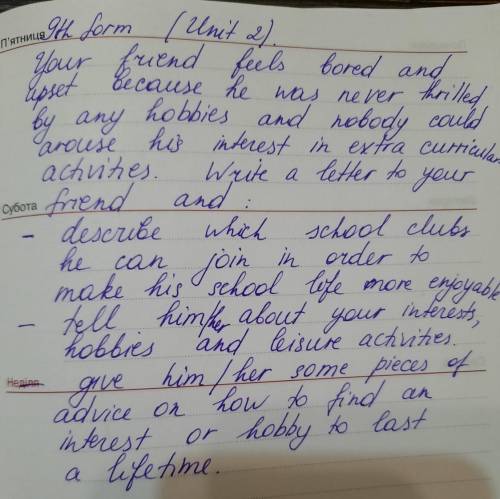 П'ятниця 9th form (Unit 2).
Your friend feels bored and
upset because he was never thrilled
by any hobbies and nobody could
arouse his interest in extra curricular
activities. Write a letter to your
Субота friend and :
- describe which school clubs
he can join in order to
make his school life more enjoyable
- tell him/her about your interests,
hobbies and leisure activities.
Неділя - give him/her some pieces of
advice on how to find an
interest or hobby to last
a lifetime.